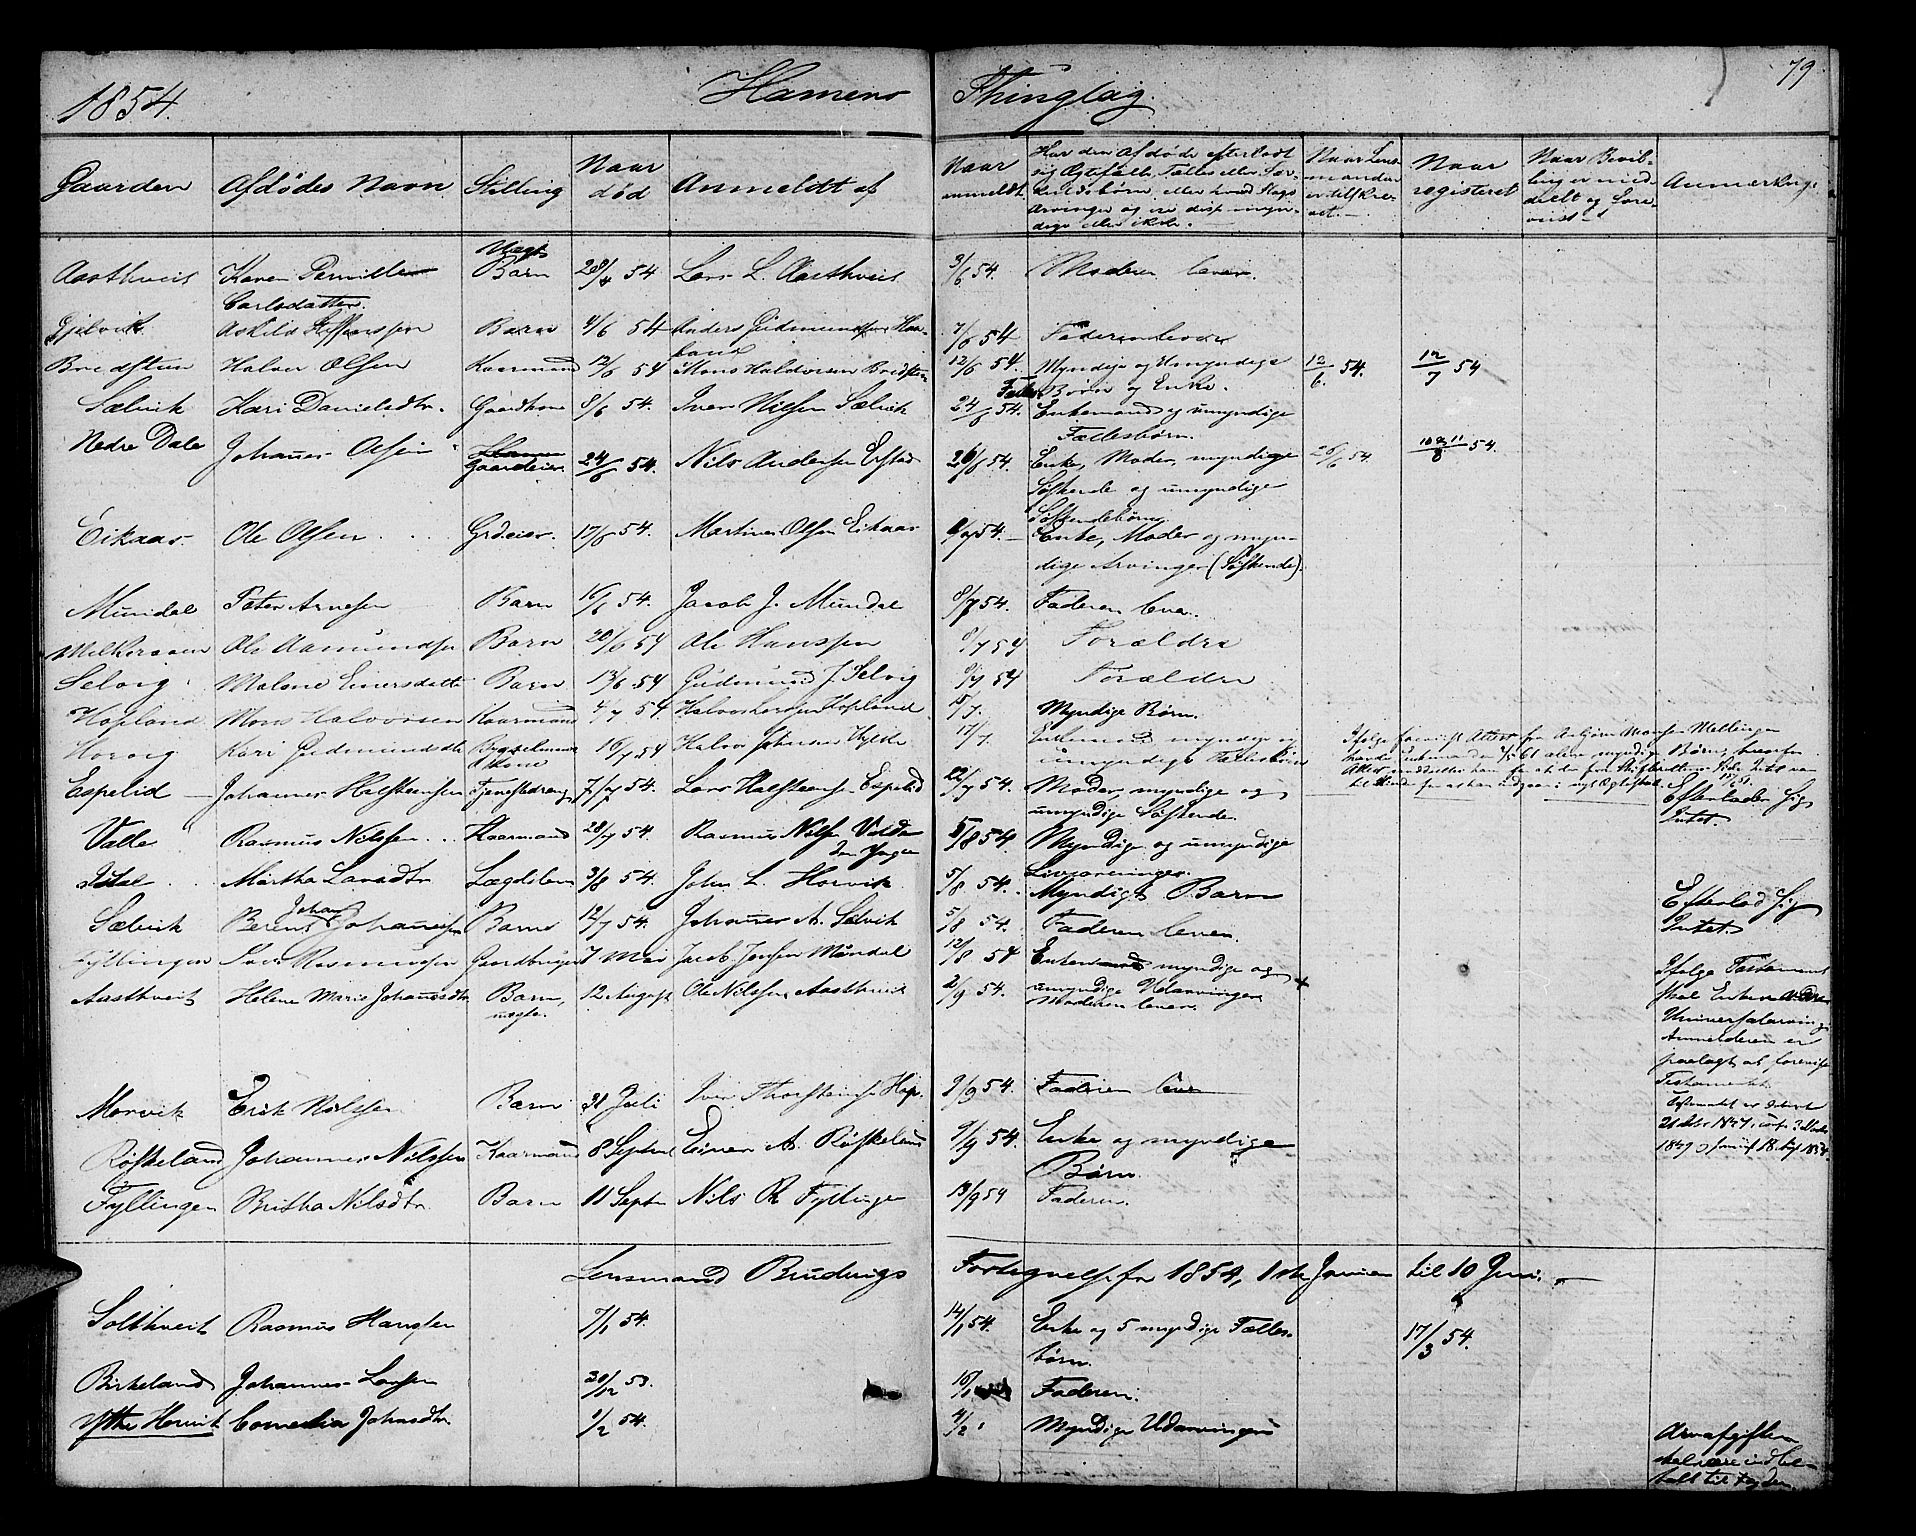 1854. Hamens Thinglag. 79
Gaarden Afdødes Navn Stilling Naar død Anmeldt af Naar anmeldt. Har den Afdøde efterladt sig Ægtefælle, Fælles eller Særkuldsbørn, eller hvad Slags Arvinger og ere disse myndige eller ikke. Naar Lensmanden er tilskrevet. Naar registeret Naar Bevilling er meddeelt og forevist Anmærkng:
Aasthveit Karen Pernille Carlsdatter. Uægt Barn 28/4 54 Lars L. Aasthveit 3/6 54. Moderen lever.
Gjelvik Askild Steffenssen Barn 4/6 54 Anders Gudmundsen Havland 7/6 54 Faderen lever
Bredstun Halvor Olsen Kaarmand 12/6 54 Mons Halvorsen Bredstun 12/6 54. Myndige og Umyndige Fælles Børn og Enke. 12/6 54. 12/7 54
Sælvik Kari Danielsdtr. Gaardkone 8/6 54. Iver Nilsen Sælvik 24/6 54. Enkemand og umyndige Fællesbørn.
Nedre Dale Johannes Olsen Gaardeier 24/6 54. Nils Andersen Erstad 26/6 54. Enke, Moder, myndige Søskende og umyndige Søskendebørn 26/6 54 10 og 11/8 54.
Eikaas. Ole Olsen Grdeier 17/6 54. Martinus Olsen Eikaas 8/7 54. Enke, Moder og myndige Arvinger (Søskende).
Mundal Peter Arnesen Barn 16/6 54. Jacob J. Mundal 8/7 54. Faderen lever.
Melkeraaen Ole Aamundsen Barn 20/6 54 Ole Hanssen 8/7 54 Forældre
Selvig Malene Einersdatter Barn 13/6 54 Gudmund J. Selvig 8/7 54 Forældre
Hopland Mons Halvorsen Kaarmand 4/7 54 Halvor Hopland 15/7. Myndige Børn.
Horvig Kari Gudmundsdtr 16/7 54 Halvor 17/7. Enkemand myndige og umyndige Fællesbørn
Espelid Johannes Halsteinsen Tjenestedreng 7/7 54. Lars Halsteinsen Espelid 22/7 54. Moder, myndige og umyndige Søskende. Efterlader sig Intet.
Valle Rasmus Nilssen Kaarmand 28/7 54. Rasmus Nilsen Valde den Yngre 5/8 54 Myndige og umyndige Livsarvinger.
Martha Larsdtr Lægdslem 3/8 54. John L. Horvik. 5/8 54. Myndigt Barn Efterlod sig Intet.
Sælvik Berent Johan Johannessen Barn 12/7 54. Johannes A. Sælvik 5/8 54. Faderen lever.
Fyllingen Lars Rasmussen Gaardbruger 7 Mai Jacob Jensen Mundal 12/8 54 Enke myndige og umyndige Udarvinger + Ifølge Testament skal Enken være Universalarving. Anmelderen er paalagt at forevise Testamentet.
Aasthveit Helene Marie Johannesdtr Barn, uægte. 12 August Ole Nilssen Aasthveit 2/9 54. Moderen lever.
Morvik Erik Nilssen Barn 31 Juli Iver Thorsteinsen Hop. 9/9 54. Faderen lever
Røskeland Johannes Nilssen Kaarmand 8 Septem Einer A. Røskeland 9/9 54. Enke og myndige Børn.
Fyllingen Britha Nilsdtr Barn 11 Septbr Nils R Fyllingen 13/9 54 Faderen.
Lensmand Brudvigs Fortegnelse for 1854, 1ste Januar til 10 Juni.
Solthveit Rasmus Hanssen 7/1 54. 14/1 54. Enke og 5 myndige Fællesbørn. 17/3 54.
Birkeland Johannes Larsen 30/12 53. 16/1 Faderen.
Ytre Horvik Cornelia Johnsdtr 1/2 54. 4/2 Myndige Udarvinger Arveafgiften skal være indbetalt til Fogden.